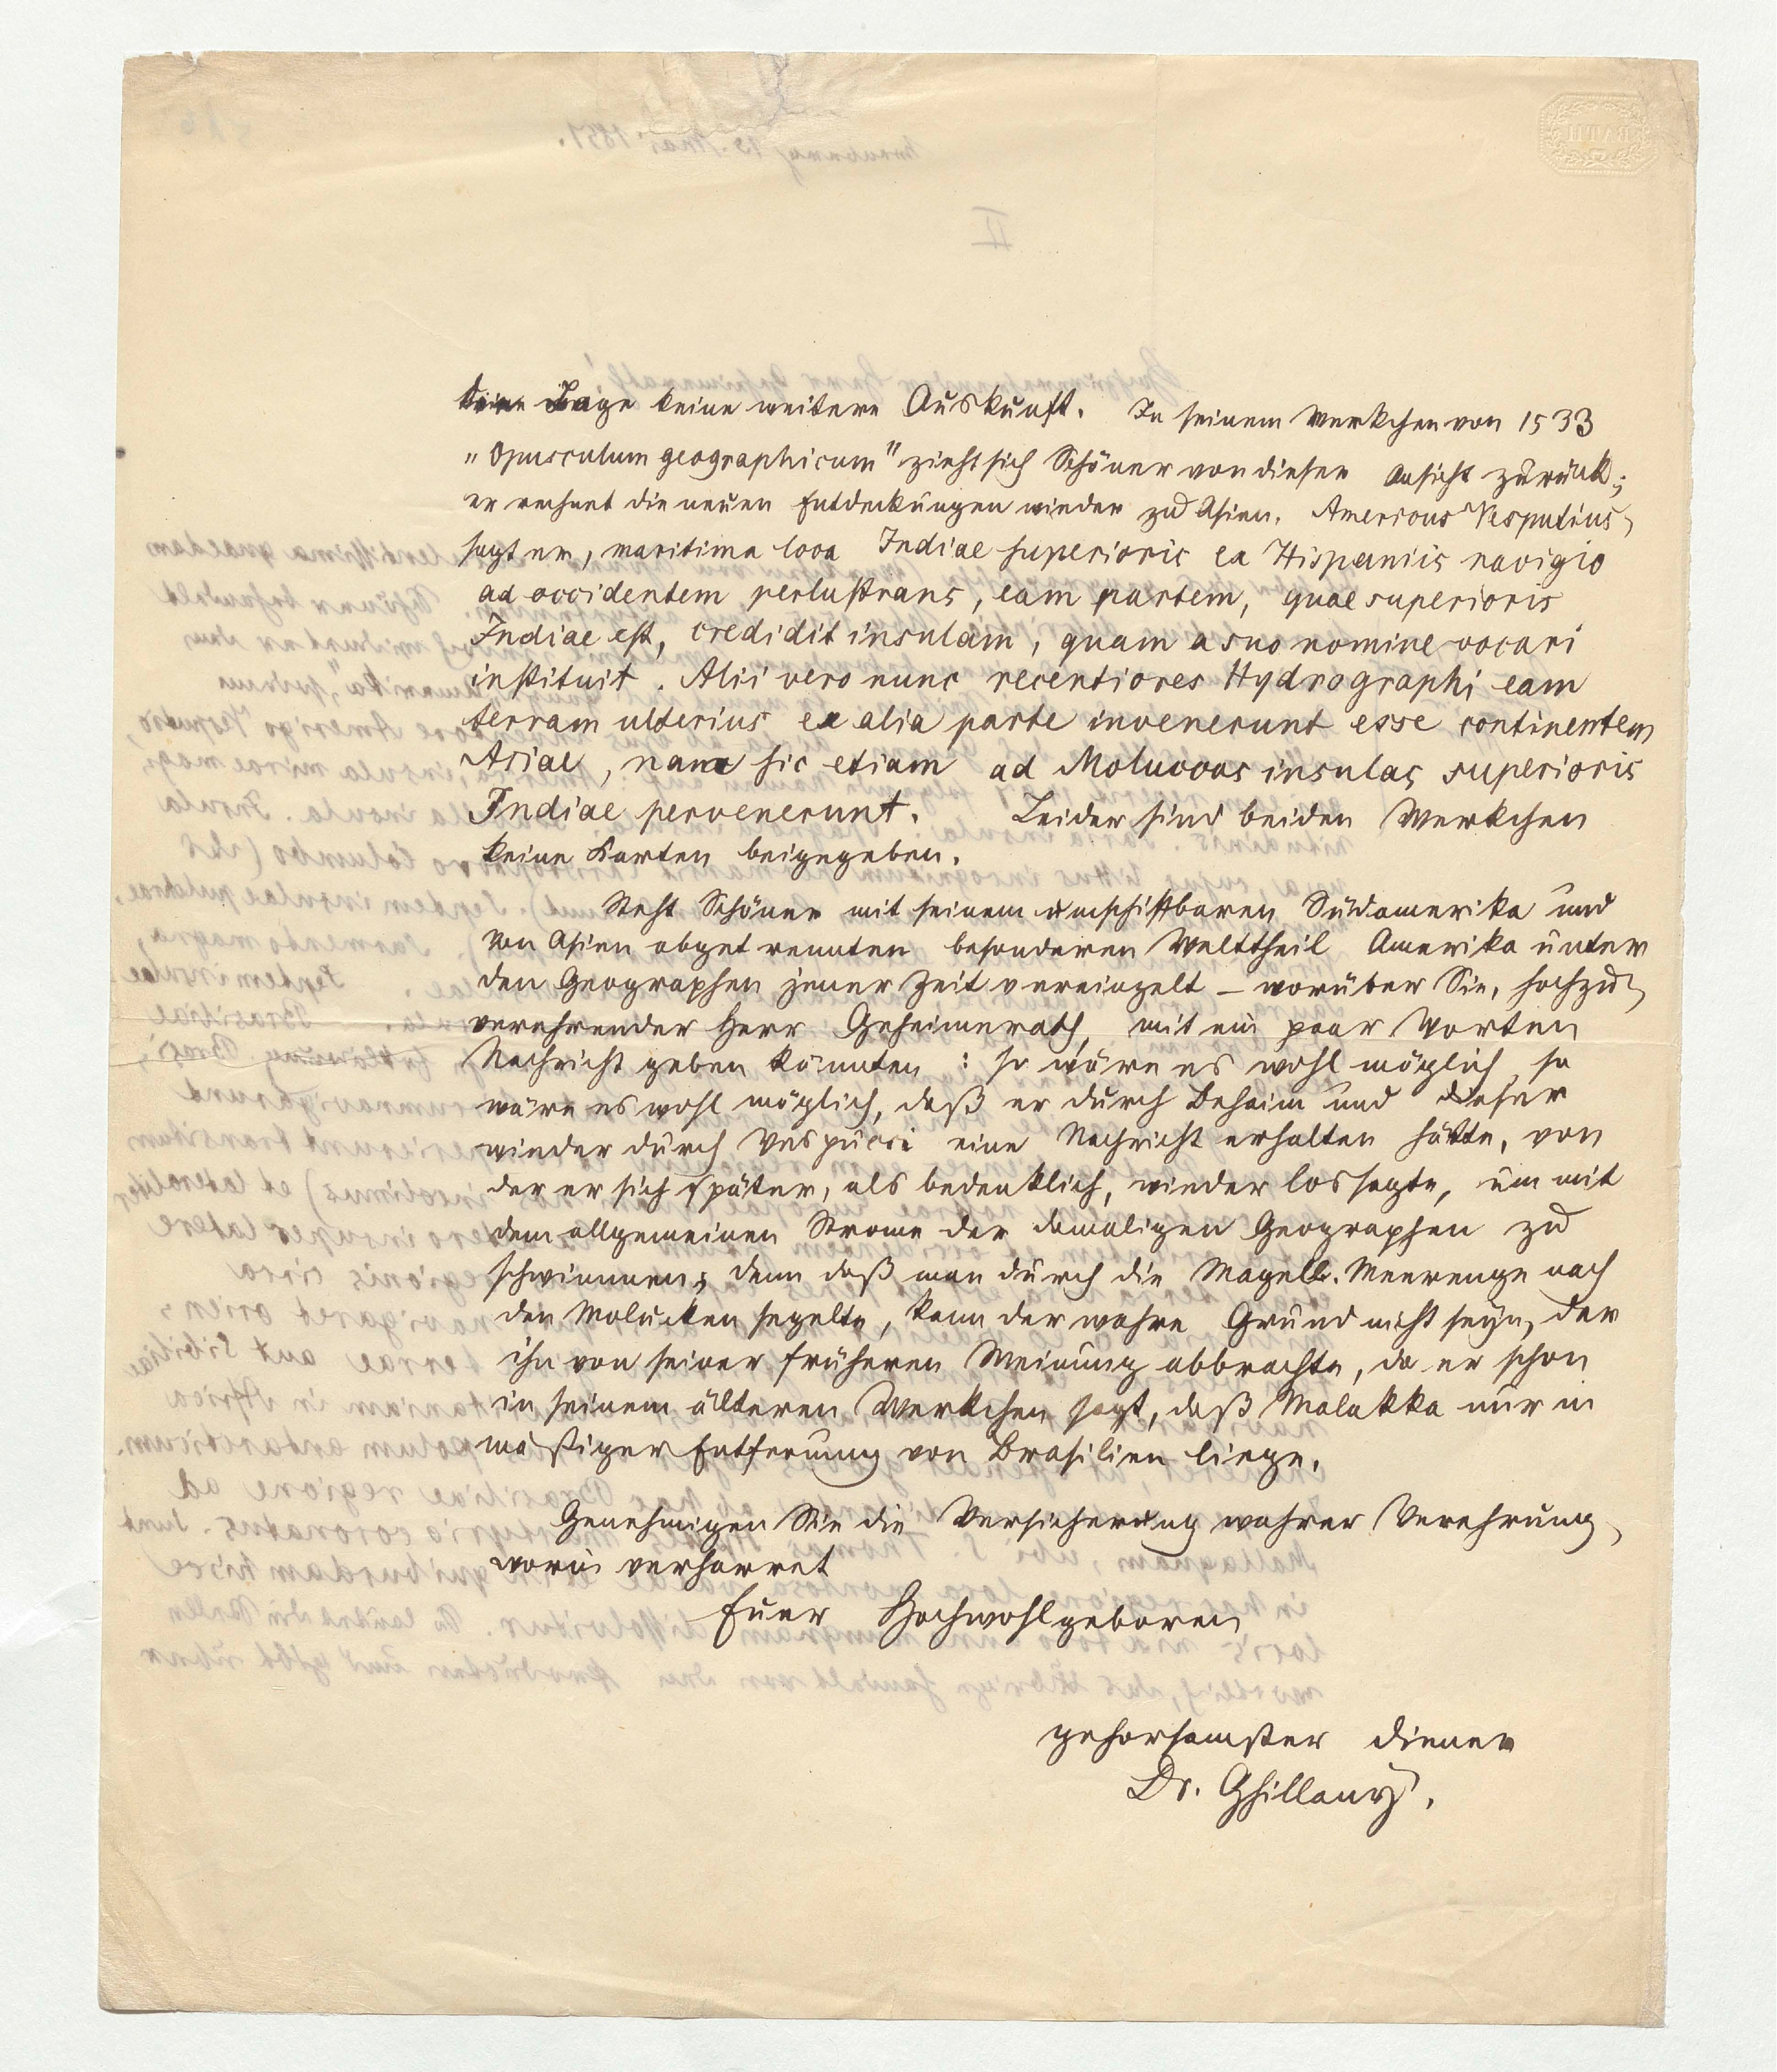 deren Lage keine weitere Auskunft. In seinem Werkchen von 1533
„Opusculum geographicum" zieht sich Schöner von dieser Ansicht zurük;
er rechnet die neuen Entdeckungen wieder zu Asien. Americus Vesputius,
sagt er, maritima loca Indiae superioris ex Hispaniis navigio
ad occidentem perlustrans, eam partem, quae superioris
Indiae est, credidit insulam, quam a suo nomine vocari
instituit. Alii vero nunc recentiores Hydrographi eam
terram ulterius ex alia parte invenerunt esse continentem
Asiae, nam sic etiam ad Moluccas insulas superioris
Indiae pervenerunt. Leider sind beiden Werkchen
keine Karten beigegeben.
Steht Schöner mit seinem umschiffbaren Südamerika und
von Asien abgetrennten besonderen Welttheil Amerika unter
den Geographen jener Zeit vereinzelt – worüber Sie, hochzu-
verehrender Herr Geheimerath, mit ein paar Worten
Nachricht geben könnten: so wäre es wohl möglich, so
wäre es wohl möglich, daß er durch Behaim und dieser
wieder durch Vespucci eine Nachricht erhalten hätte, von
der er sich später, als bedenklich, wieder lossagte, um mit
dem allgemeinen Strome der damaligen Geographen zu
schwimmen; denn daß man durch die Magell. Meerenge nach
den Molucken segelte, kann der wahre Grund nicht seyn, der
ihn von seiner früheren Meinung abbrachte, da er schon
in seinem älteren Werkchen sagt, daß Malakka nur in
mäßiger Entfernung von Brasilien liege.
Genehmigen Sie die Versicherung wahrer Verehrung,
worin verharret
Euer Hochwohlgeboren
gehorsamster Diener
Dr. Ghillany.